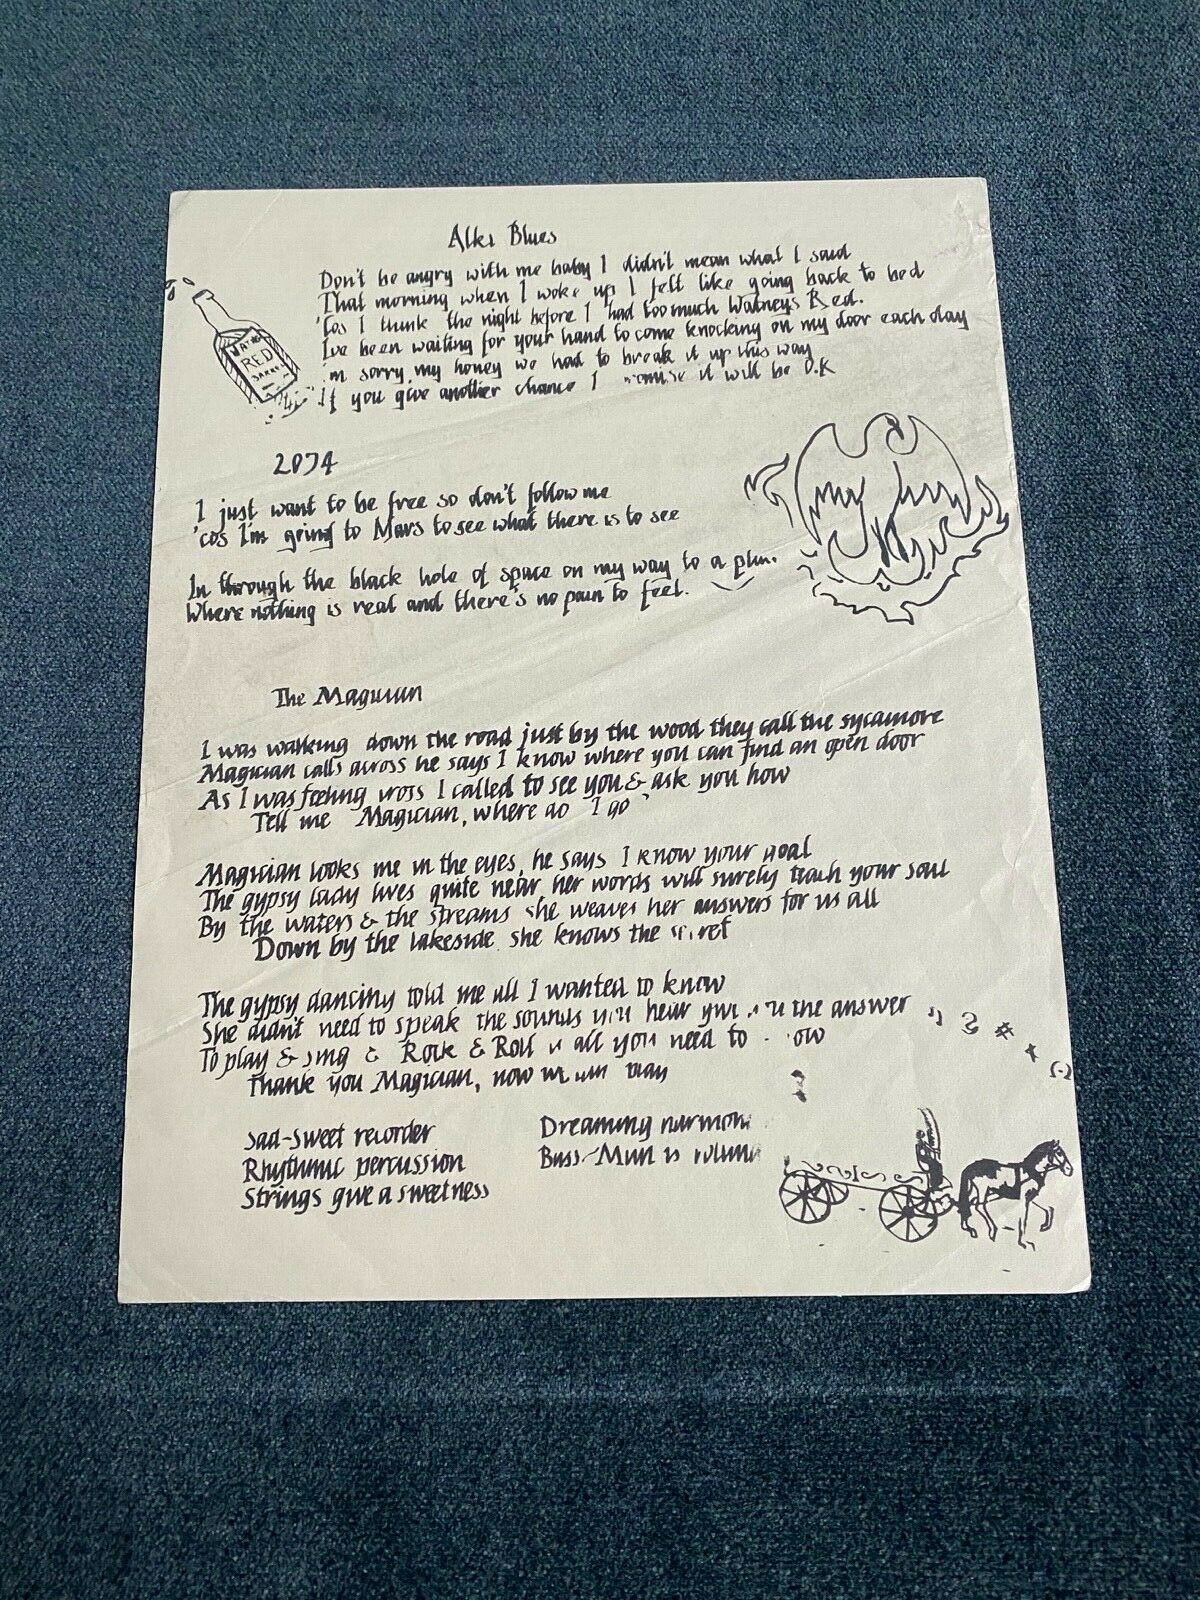 Alks Blues
Don't be angry with me baby I didn't mean what I said
That morning when I woke up I felt like going back to bed
'Cos I think the night before I had too much Watneys Red.
I've been waiting for your hand to come knocking on my door each day
'm sorry my honey we had to break it up this way
If you give another chance I it will be O.K
RED
2074
I just want to be free so don't follow me
'cos I'm going to Mars to see what there is to see
In through the black hole of space on my way to a
Where nothing is real and there's no pain to feel.
The Magician
I was walking down the road just by the wood they call the sycamore
Magician calls across he says I know where you can find an open door
As I was feeling cross I called to see you & ask you how
Tell me Magician, where do I go
Magician looks me in the eyes, he says I know your goal
The gypsy lady lives quite near her words will surely teach your soul
By the waters & the streams she weaves her answers for us all
Down by the lakeside she knows the
The gypsy dancing told me all I wanted to know
She didn't need to speak the sounds you hear the answer
To play & sing & Rock & Roll is all you need to
Thank you Magician, now play
Sad-sweet recorder
Rhythmic percussion
Strings give a sweetness
Dreaming
Bass-Man is